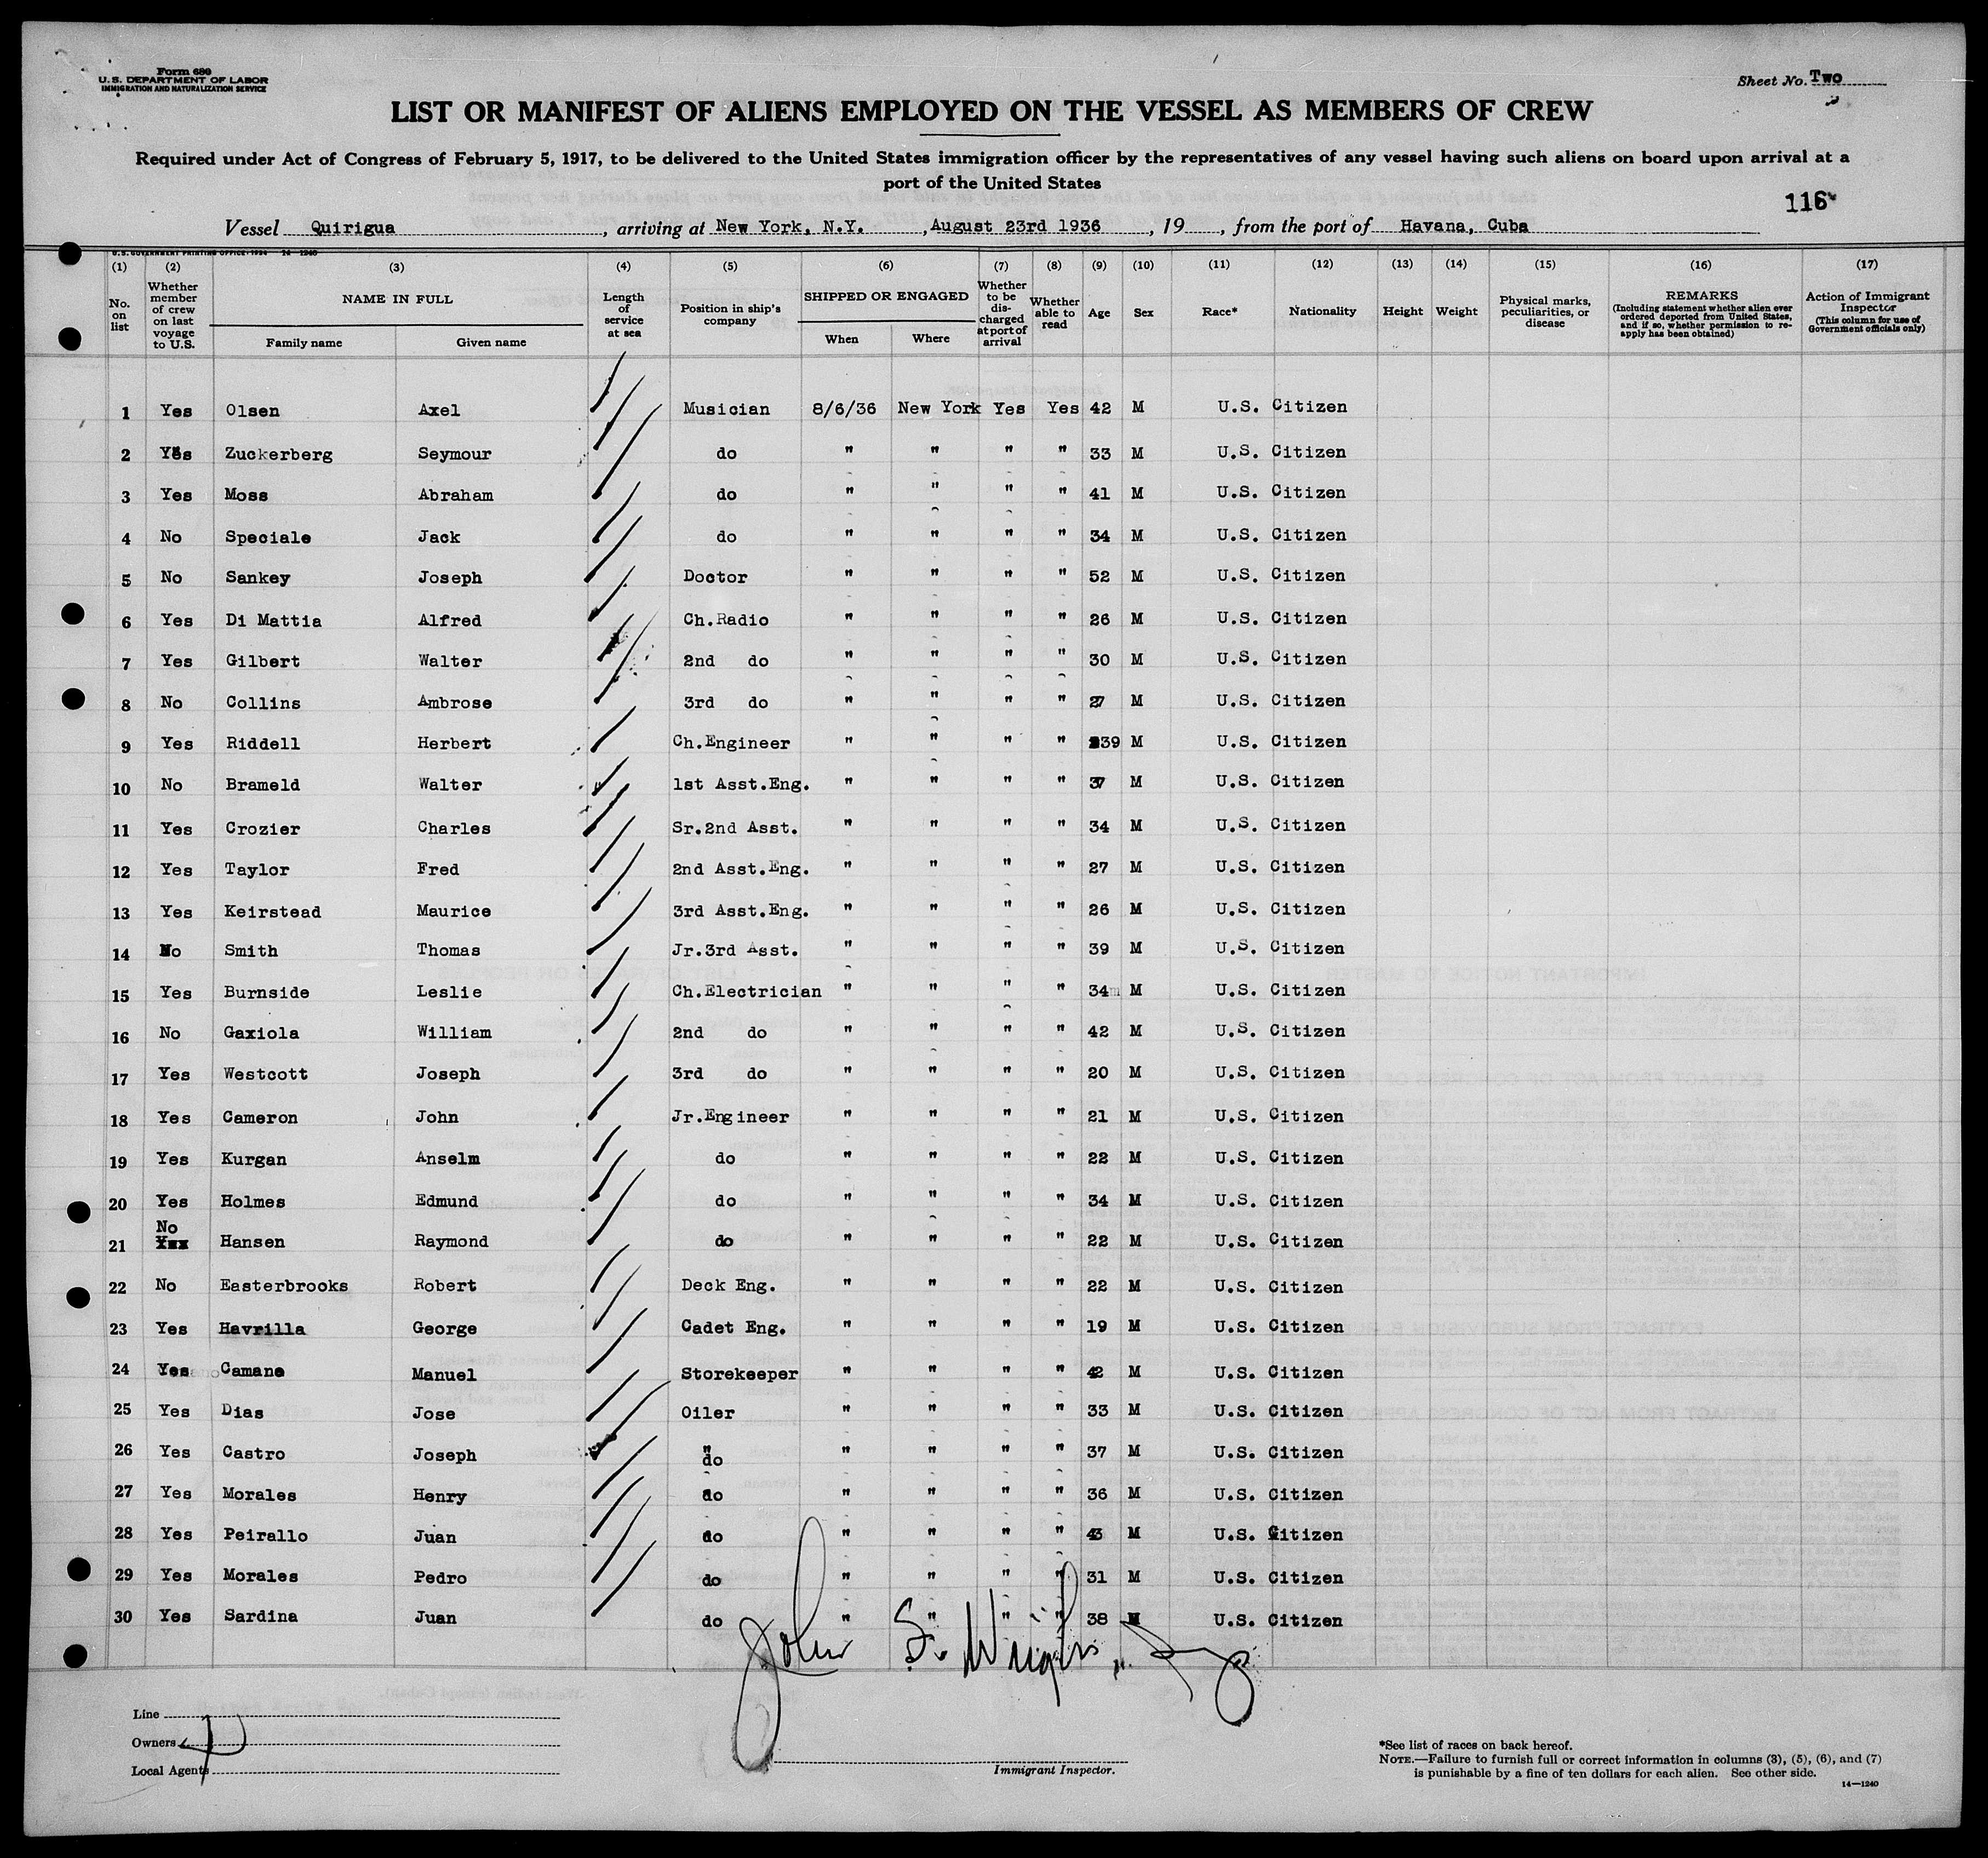 Form 680
U. S. DEPARTMENT OF LABOR
IMMIGRATION AND NATURALIZATION SERVICE
Sheet No. Two
LIST OR MANIFEST OF ALIENS EMPLOYED ON THE VESSEL AS MEMBERS OF CREW
Required under Act of Congress of February 5, 1917, to be delivered to the United States immigration officer by the representatives of any vessel having such aliens on board upon arrival at a
port of the United States
116
Vessel Quirigua, arriving at New York, N.Y., August 23rd 1936, 19, from the port of Havana, Cuba
U.S. GOVERNMENT PRINTING OFFICE: 1934 14-1240
(1) (2) (3) (4) (5) (6) (7) (8) (9) (10) (11) (12) (13) (14) (15) (16) (17)
No. on list Whether member of crew on last voyage to U.S. NAME IN FULL Family name Given name Length of service at sea Position in ship's company SHIPPED OR ENGAGED When Where Whether to be discharged at port of arrival Whether able to read Age Sex Race* Nationality Height Weight Physical marks, peculiarities, or disease REMARKS (Including statement whether alien ever ordered deported from United States, and if so, whether permission to reapply has been obtained) Action of Immigrant Inspector (This column for use of Government officials only)
1 Yes Olsen Axel Musician 8/6/36 New York Yes Yes 42 M U.S. Citizen
2 Yes Zuckerberg Seymour do " " " " 33 M U.S. Citizen
3 Yes Moss Abraham do " " " " 41 M U.S. Citizen
4 No Speciale Jack do " " " " 34 M U.S. Citizen
5 No Sankey Joseph Doctor " " " " 52 M U.S. Citizen
6 Yes Di Mattia Alfred Ch.Radio " " " " 26 M U.S. Citizen
7 Yes Gilbert Walter 2nd do " " " " 30 M U.S. Citizen
8 No Collins Ambrose 3rd do " " " " 27 M U.S. Citizen
9 Yes Riddell Herbert Ch.Engineer " " " " 39 M U.S. Citizen
10 No Brameld Walter 1st Asst.Eng. " " " " 37 M U.S. Citizen
11 Yes Crozier Charles Sr.2nd Asst. " " " " 34 M U.S. Citizen
12 Yes Taylor Fred 2nd Asst.Eng. " " " " 27 M U.S. Citizen
13 Yes Keirstead Maurice 3rd Asst.Eng. " " " " 26 M U.S. Citizen
14 No Smith Thomas Jr.3rd Asst. " " " " 39 M U.S. Citizen
15 Yes Burnside Leslie Ch.Electrician " " " " 34 M U.S. Citizen
16 No Gaxiola William 2nd do " " " " 42 M U.S. Citizen
17 Yes Westcott Joseph 3rd do " " " " 20 M U.S. Citizen
18 Yes Cameron John Jr.Engineer " " " " 21 M U.S. Citizen
19 Yes Kurgan Anselm do " " " " 22 M U.S. Citizen
20 Yes Holmes Edmund do " " " " 34 M U.S. Citizen
21 No Hansen Raymond do " " " " 22 M U.S. Citizen
22 No Easterbrooks Robert Deck Eng. " " " " 22 M U.S. Citizen
23 Yes Havrilla George Cadet Eng. " " " " 19 M U.S. Citizen
24 Yes Camane Manuel Storekeeper " " " " 42 M U.S. Citizen
25 Yes Dias Jose Oiler " " " " 33 M U.S. Citizen
26 Yes Castro Joseph do " " " " 37 M U.S. Citizen
27 Yes Morales Henry do " " " " 36 M U.S. Citizen
28 Yes Peirallo Juan do " " " " 43 M U.S. Citizen
29 Yes Morales Pedro do " " " " 31 M U.S. Citizen
30 Yes Sardina Juan do " " " " 38 M U.S. Citizen
John S. Wright
Line
Owners
Local Agents
Immigrant Inspector.
*See list of races on back hereof.
NOTE.—Failure to furnish full or correct information in columns (3), (5), (6), and (7)
is punishable by a fine of ten dollars for each alien. See other side.
14—1240